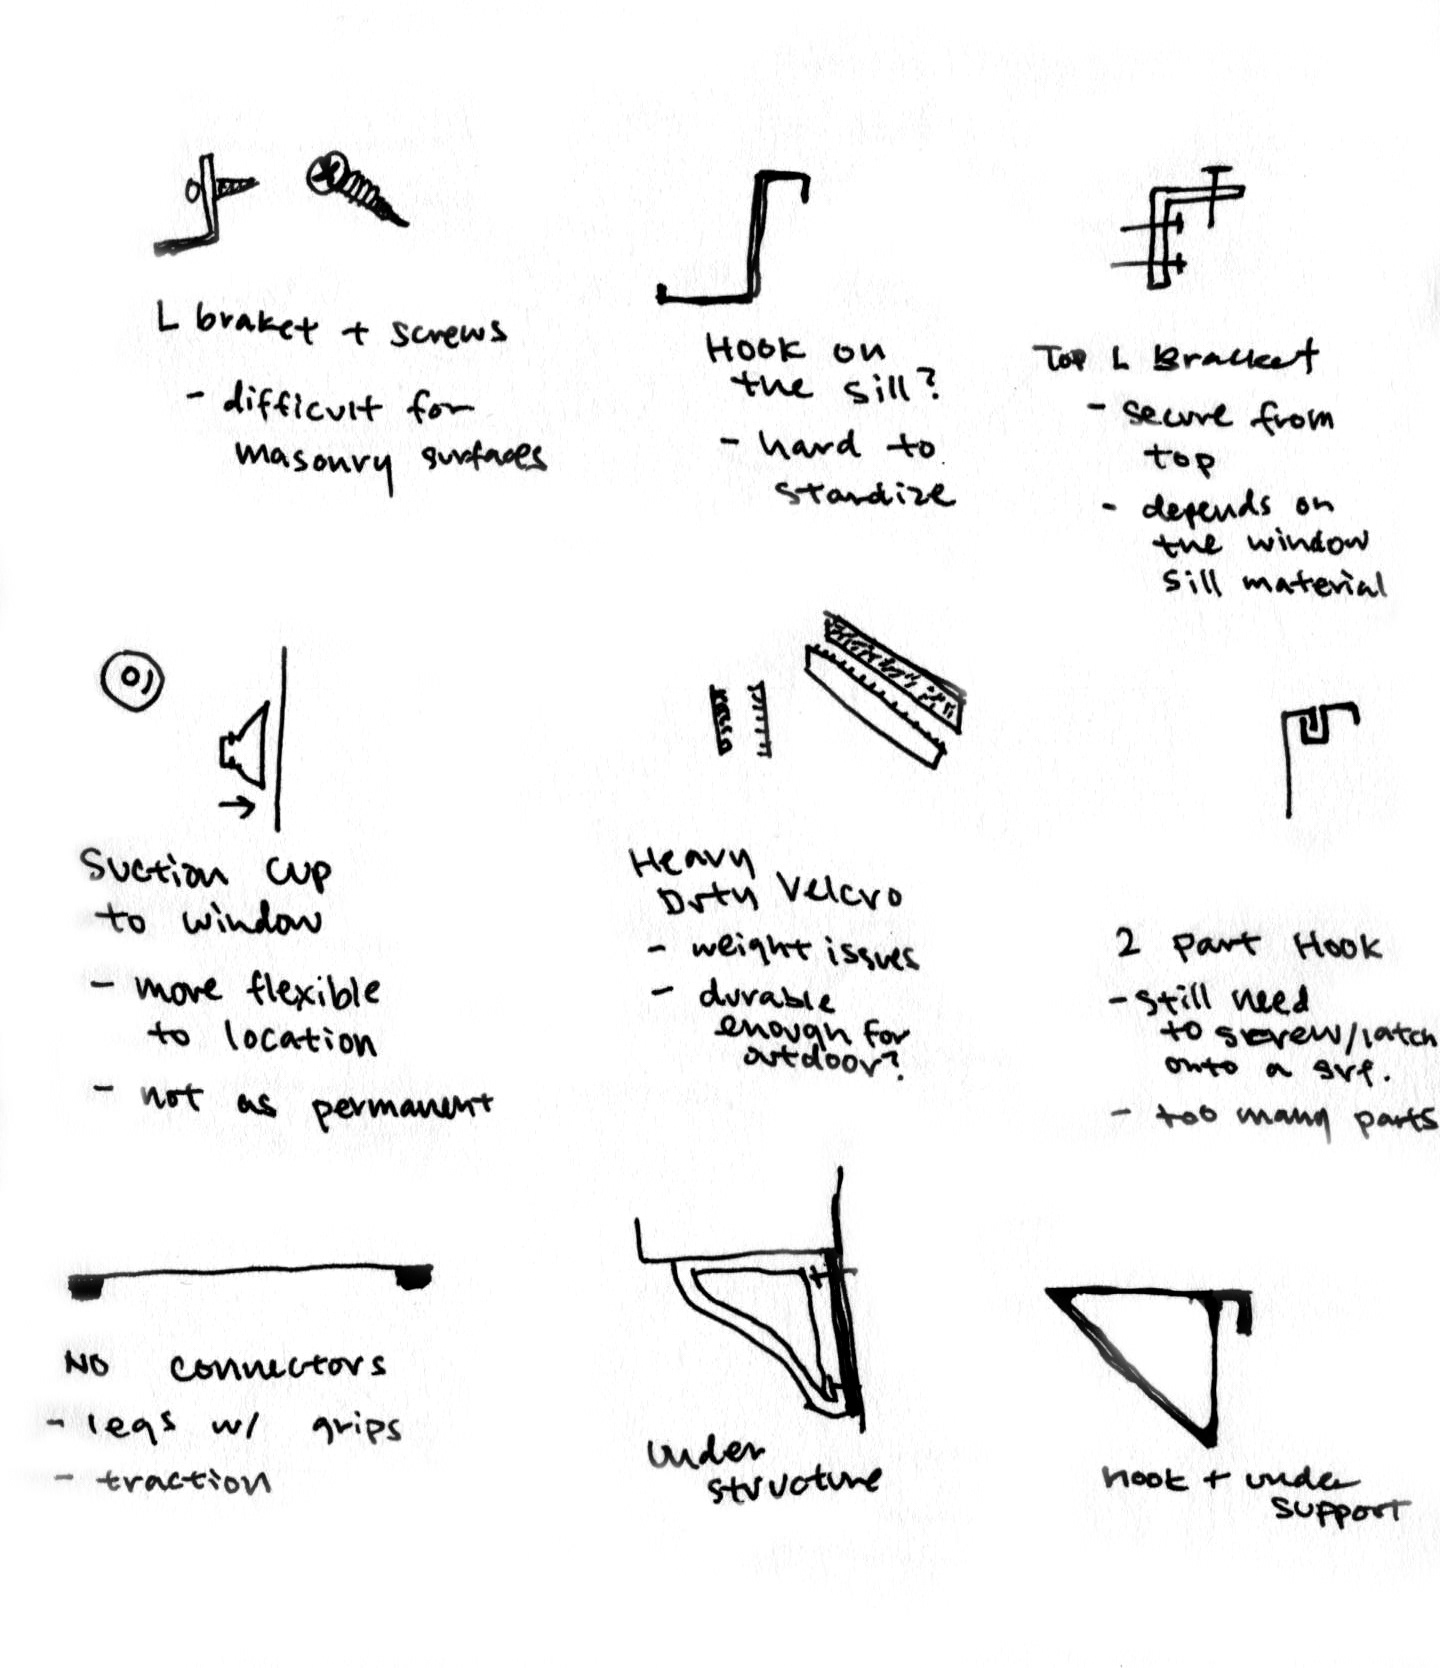 L braket + screws
- difficult for
masonry surfaces
Hook on
the sill?
- hard to
standize
Top L Bracket
- secure from
top
- depends on
the window
sill material
Suction cup
to window
- more flexible
to location
- not as permanent
Heavy
Duty Velcro
- weight issues
- durable
enough for
outdoor?
2 part Hook
- still need
to screw/latch
onto a srf.
- too many parts
NO connectors
- legs w/ grips
- traction
under
structure
hook + under
support